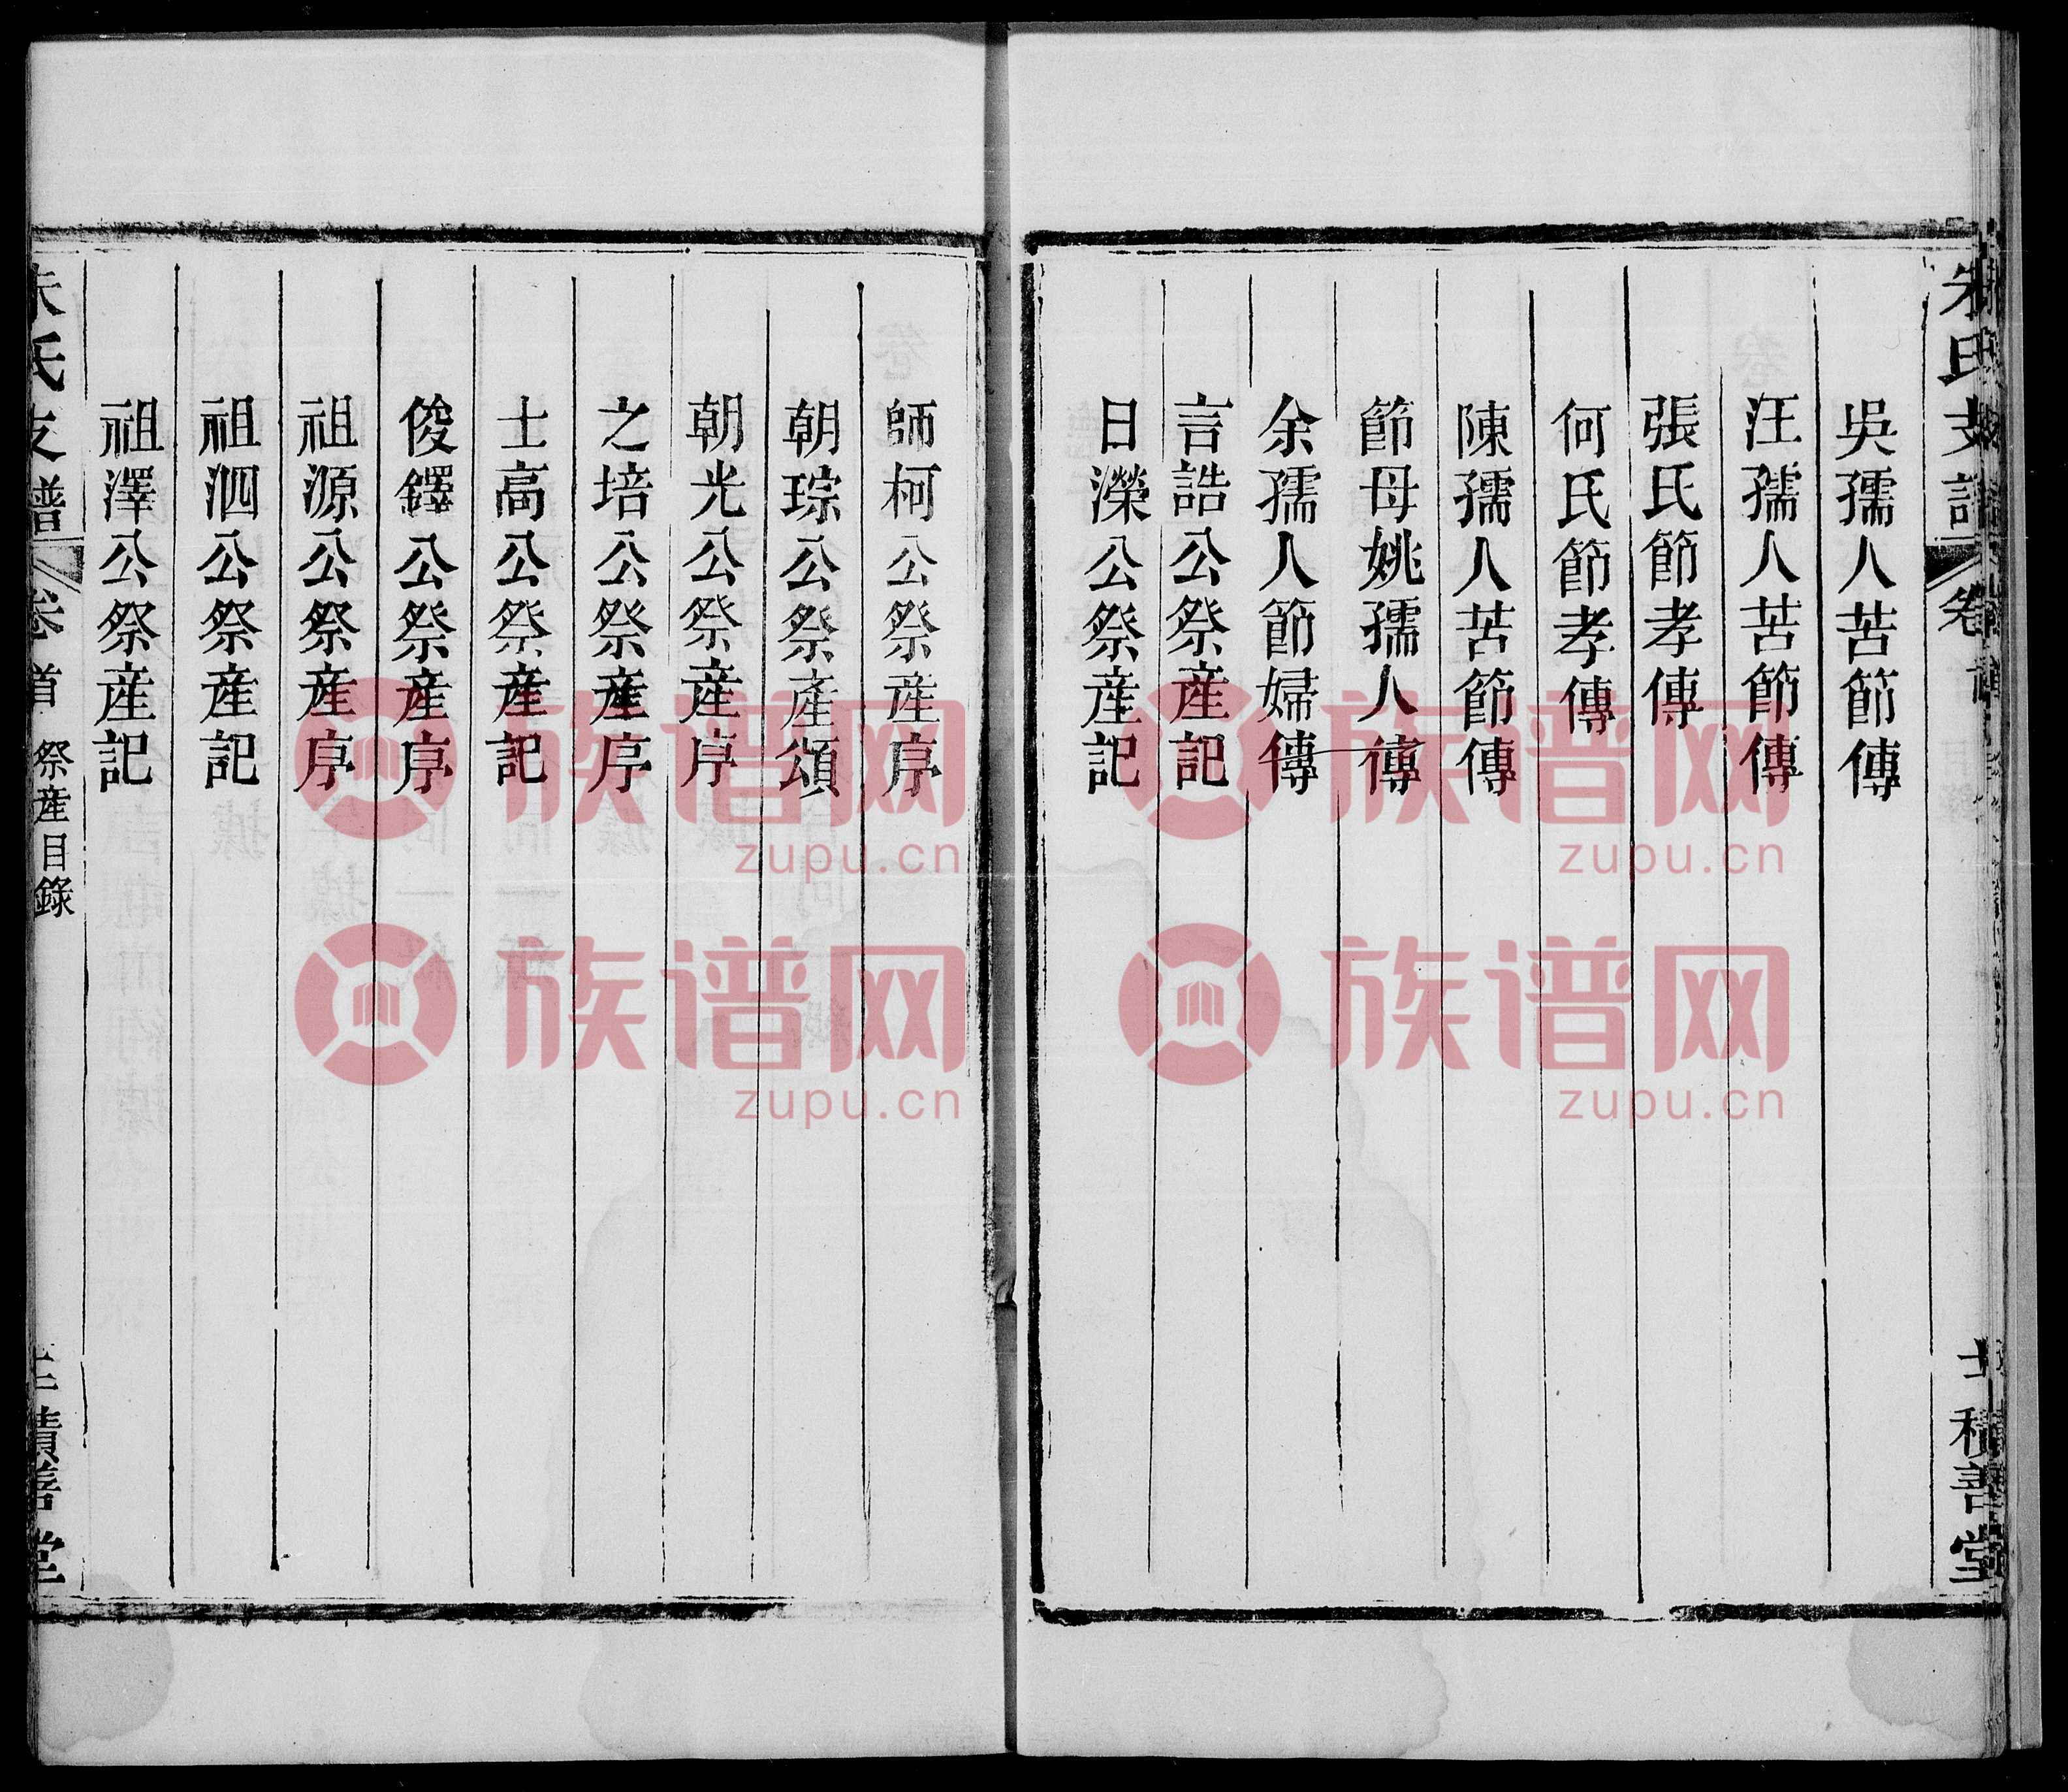 朱氏支譜
卷
積善堂
吳孺人苦節傳
汪孺人苦節傳
張氏節孝傳
何氏節孝傳
陳孺人苦節傳
節母姚孺人傳
余孺人節婦傳
言誥公祭產記
日濚公祭產記
師柯公祭產序
朝琮公祭產頌
朝光公祭產序
之培公祭產序
士高公祭產記
俊鐸公祭產序
祖源公祭產序
祖泗公祭產記
祖澤公祭產記
朱氏支譜
卷首
祭產目錄
積善堂
族谱网
zupu.cn
族谱网
zupu.cn
族谱网
zupu.cn
族谱网
zupu.cn